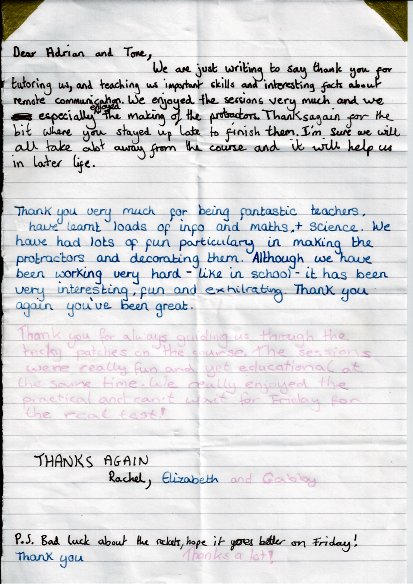 Dear Adrian and Tone,
We are just writing to say thank you for
tutoring us, and teaching us important skills and interesting facts about
remote communication. We enjoyed the sessions very much and we
especially enjoyed the making of the protractors. Thanks again for the
bit where you stayed up late to finish them. I'm sure we will
all take alot away from the course and it will help us
in later life.
Thank you very much for being fantastic teachers,
have learnt loads of info and maths, + science. We
have had lots of fun particulary in making the
protractors and decorating them. Although we have
been working very hard - like in school - it has been
very interesting, fun and exhilrating. Thank you
again you've been great.
Thank you for always guiding us through the
tricky patches on the course. The sessions
were really fun and yet educational at
the same time. We really enjoyed the
practical and can't wait for Friday for
the real test!
THANKS AGAIN
Rachel, Elizabeth and Gabby
P.S. Bad luck about the rockets, hope it goes better on Friday!
Thank you Thanks a lot!